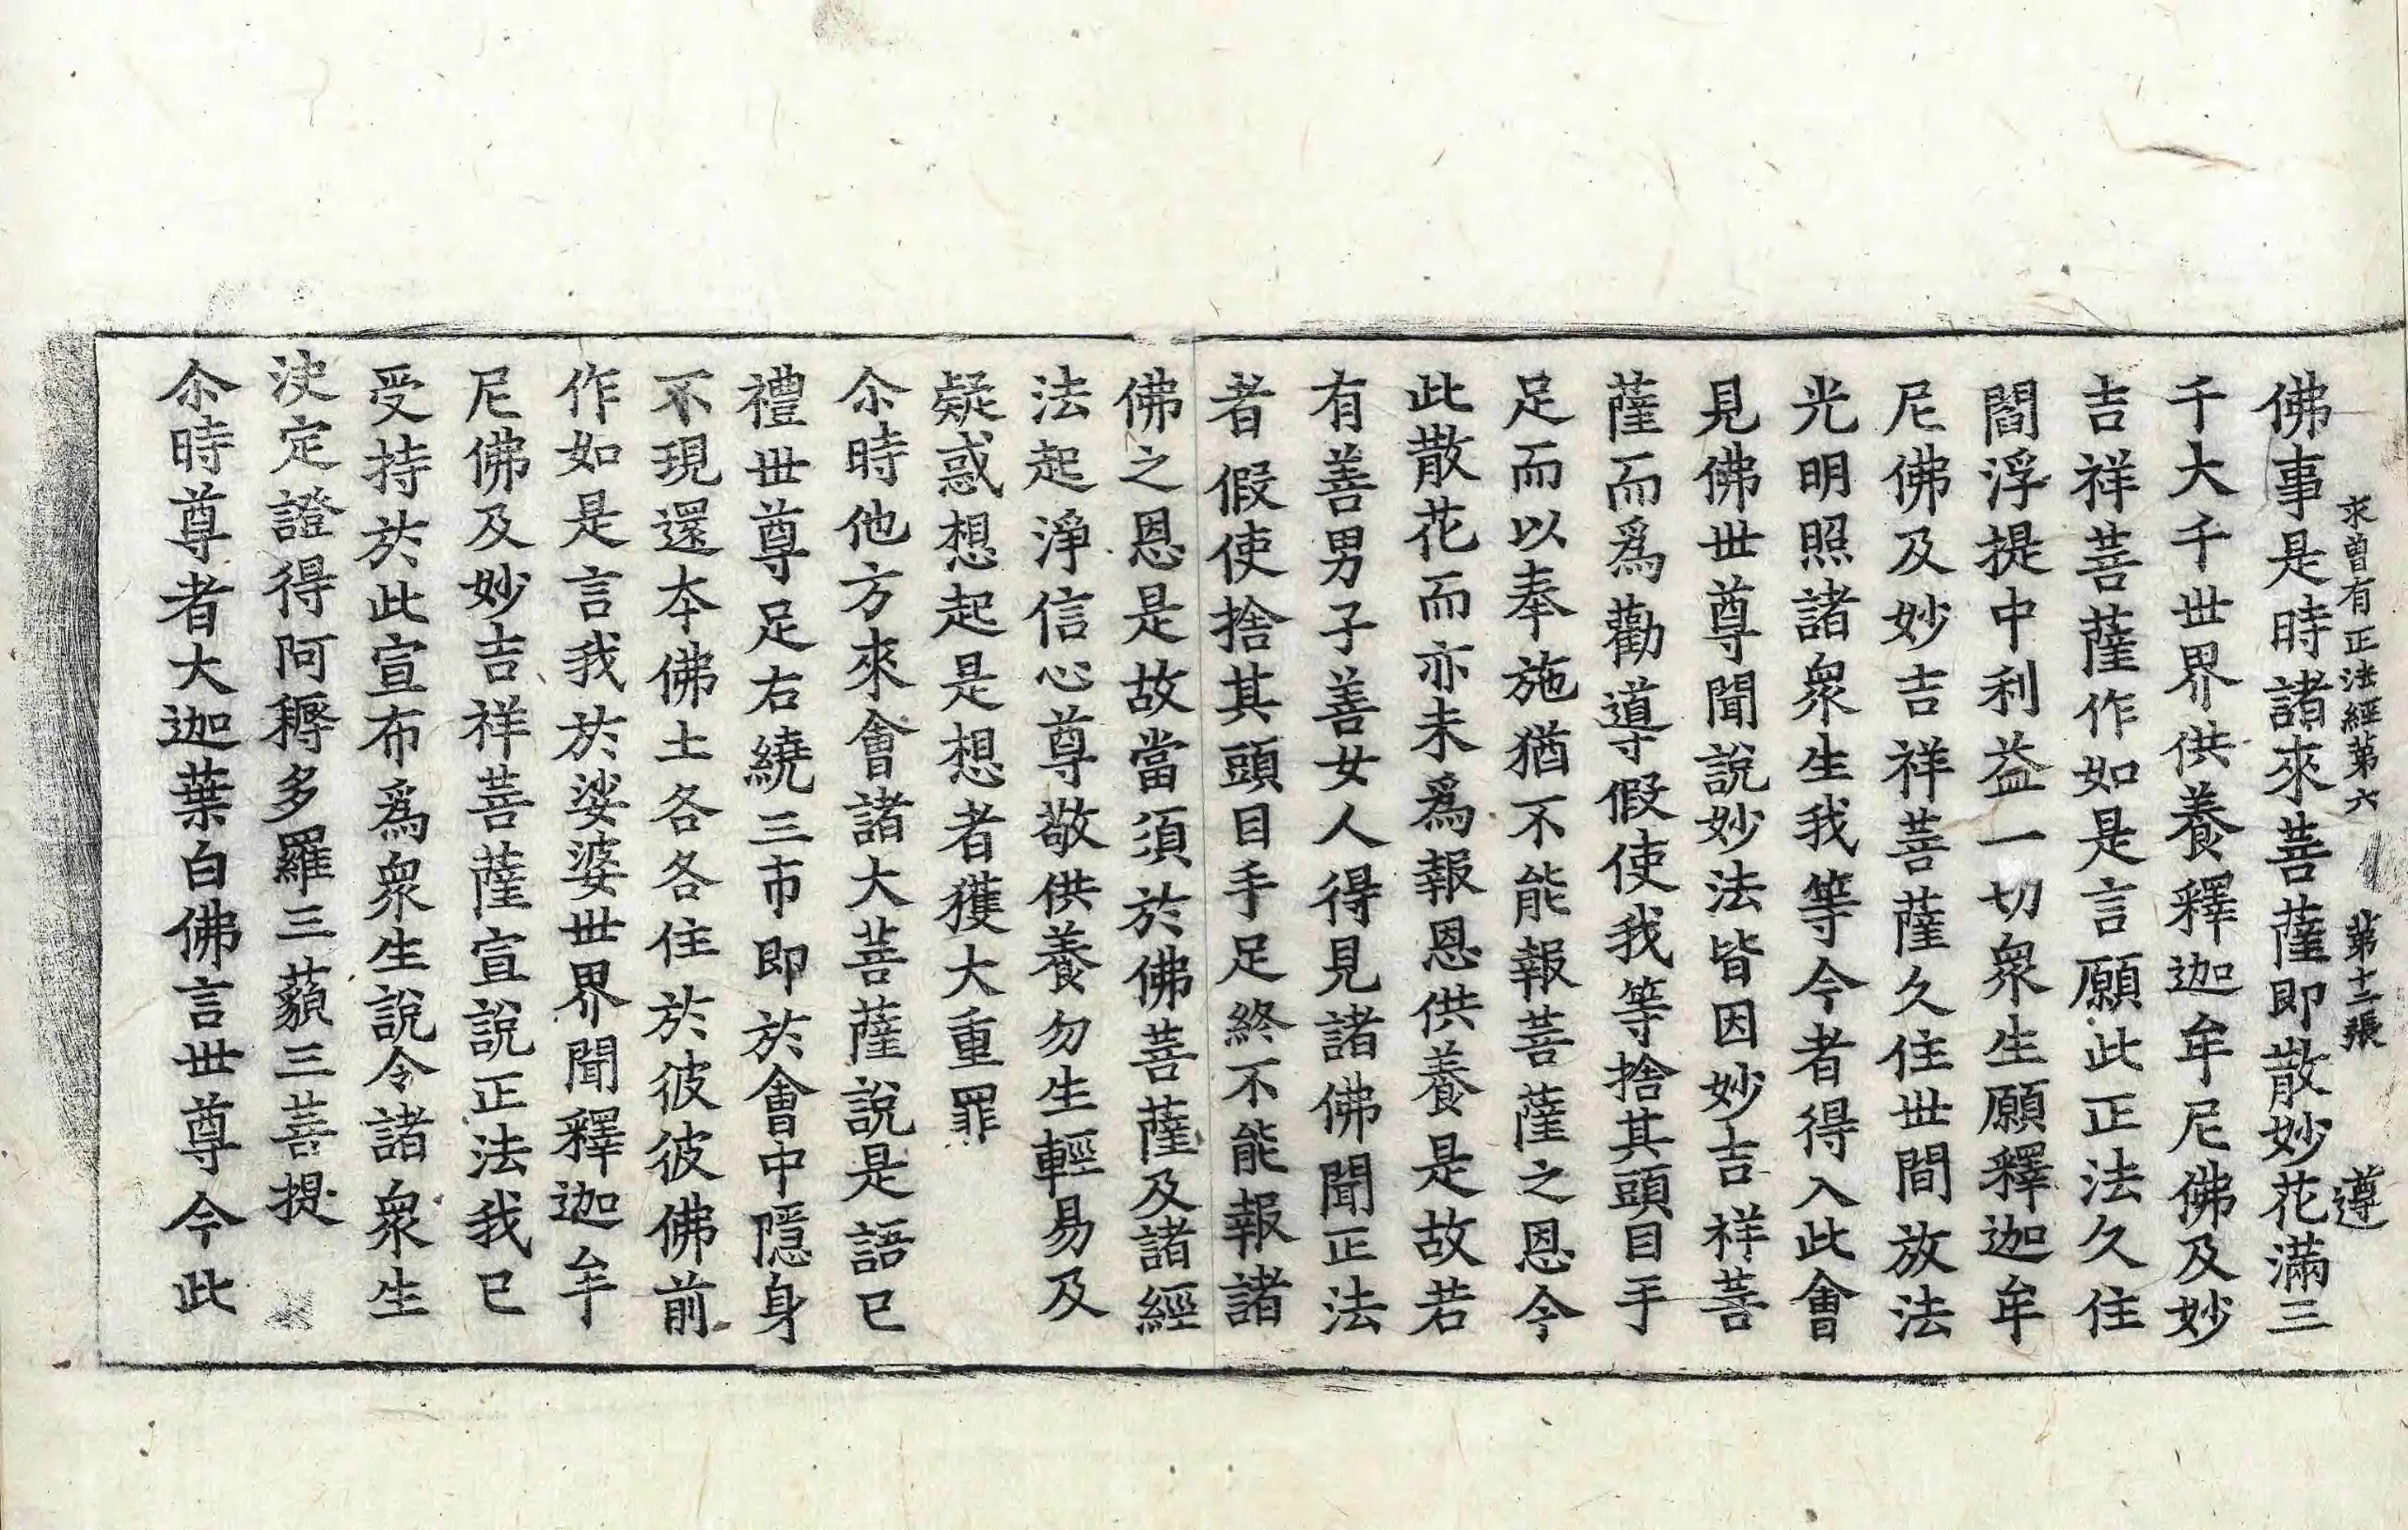 未曾有正法經第六 第十二張 遵
佛事是時諸來菩薩即散妙花滿三
千大千世界供養釋迦牟尼佛及妙
吉祥菩薩作如是言願此正法久住
閻浮提中利益一切衆生願釋迦牟
尼佛及妙吉祥菩薩久住世間放法
光明照諸衆生我等今者得入此會
見佛世尊聞說妙法皆因妙吉祥菩
薩而爲勸導假使我等捨其頭目手
足而以奉施猶不能報菩薩之恩今
此散花而亦未爲報恩供養是故若
有善男子善女人得見諸佛聞正法
者假使捨其頭目手足終不能報諸
佛之恩是故當須於佛菩薩及諸經
法起淨信心尊敬供養勿生輕易及
疑惑想起是想者獲大重罪
尒時他方來會諸大菩薩說是語已
禮世尊足右繞三帀即於會中隱身
不現還本佛土各各住於彼彼佛前
作如是言我於娑婆世界聞釋迦牟
尼佛及妙吉祥菩薩宣說正法我已
受持於此宣布爲衆生說令諸衆生
決定證得阿耨多羅三藐三菩提
尒時尊者大迦葉白佛言世尊今此